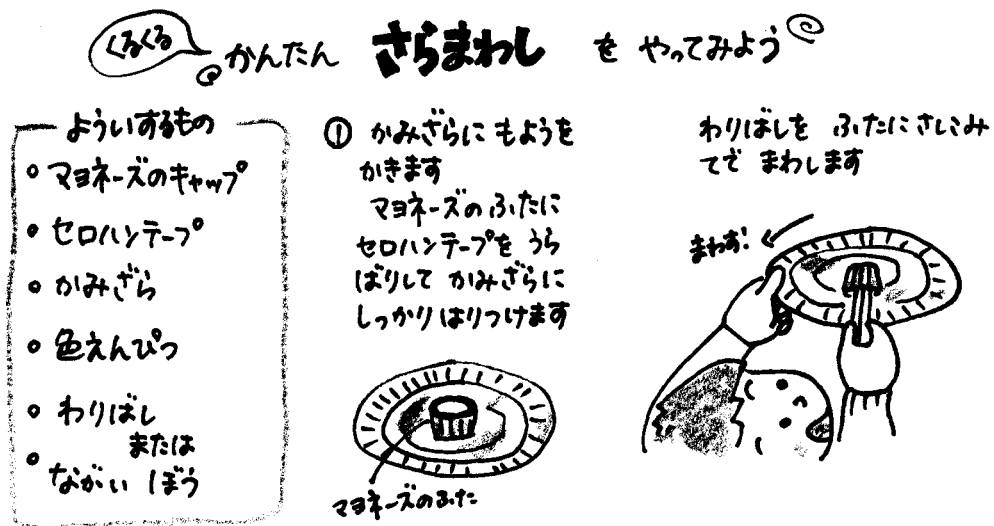 くるくる かんたん さらまわし を やってみよう
よういするもの
マヨネーズのキャップ
セロハンテープ
かみざら
色えんぴつ
わりばし
または
ながい ぼう
① かみざらに もようを
かきます
マヨネーズの ふたに
セロハンテープを うら
ばりして かみざらに
しっかり はりつけます
マヨネーズのふた
わりばしを ふたに さしこみ
てで まわします
まわす!